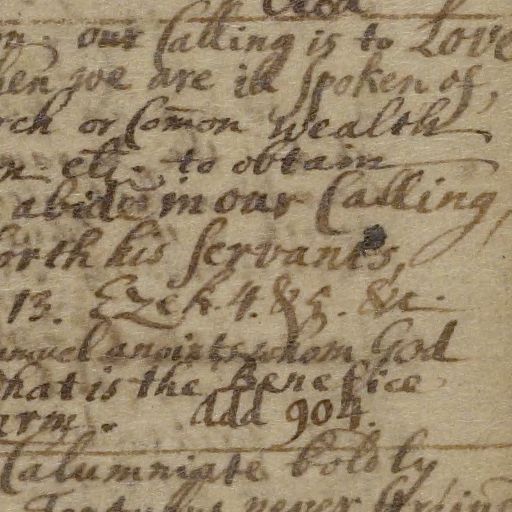 God
our Calling is to Love
hen we are ill spoken of,
rch or Com̄on wealth
to obtain
abide in our Calling,
forth his servants,
13. Ezek. 4. & 5. &c.
amuel anoints whom God
hat is the Benefice
arm. Add 904.
Calumniate boldly,
never